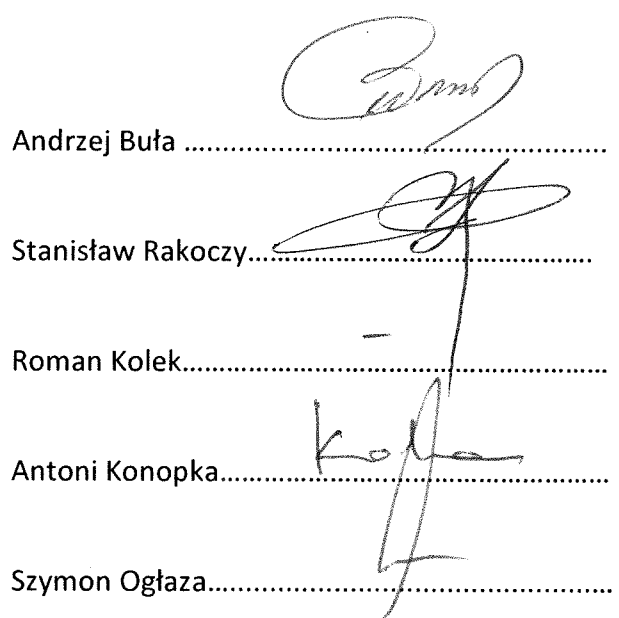 Andrzej Buła ......................................................
Stanisław Rakoczy.............................................
Roman Kolek......................................................
–
Antoni Konopka..................................................
Szymon Ogłaza....................................................